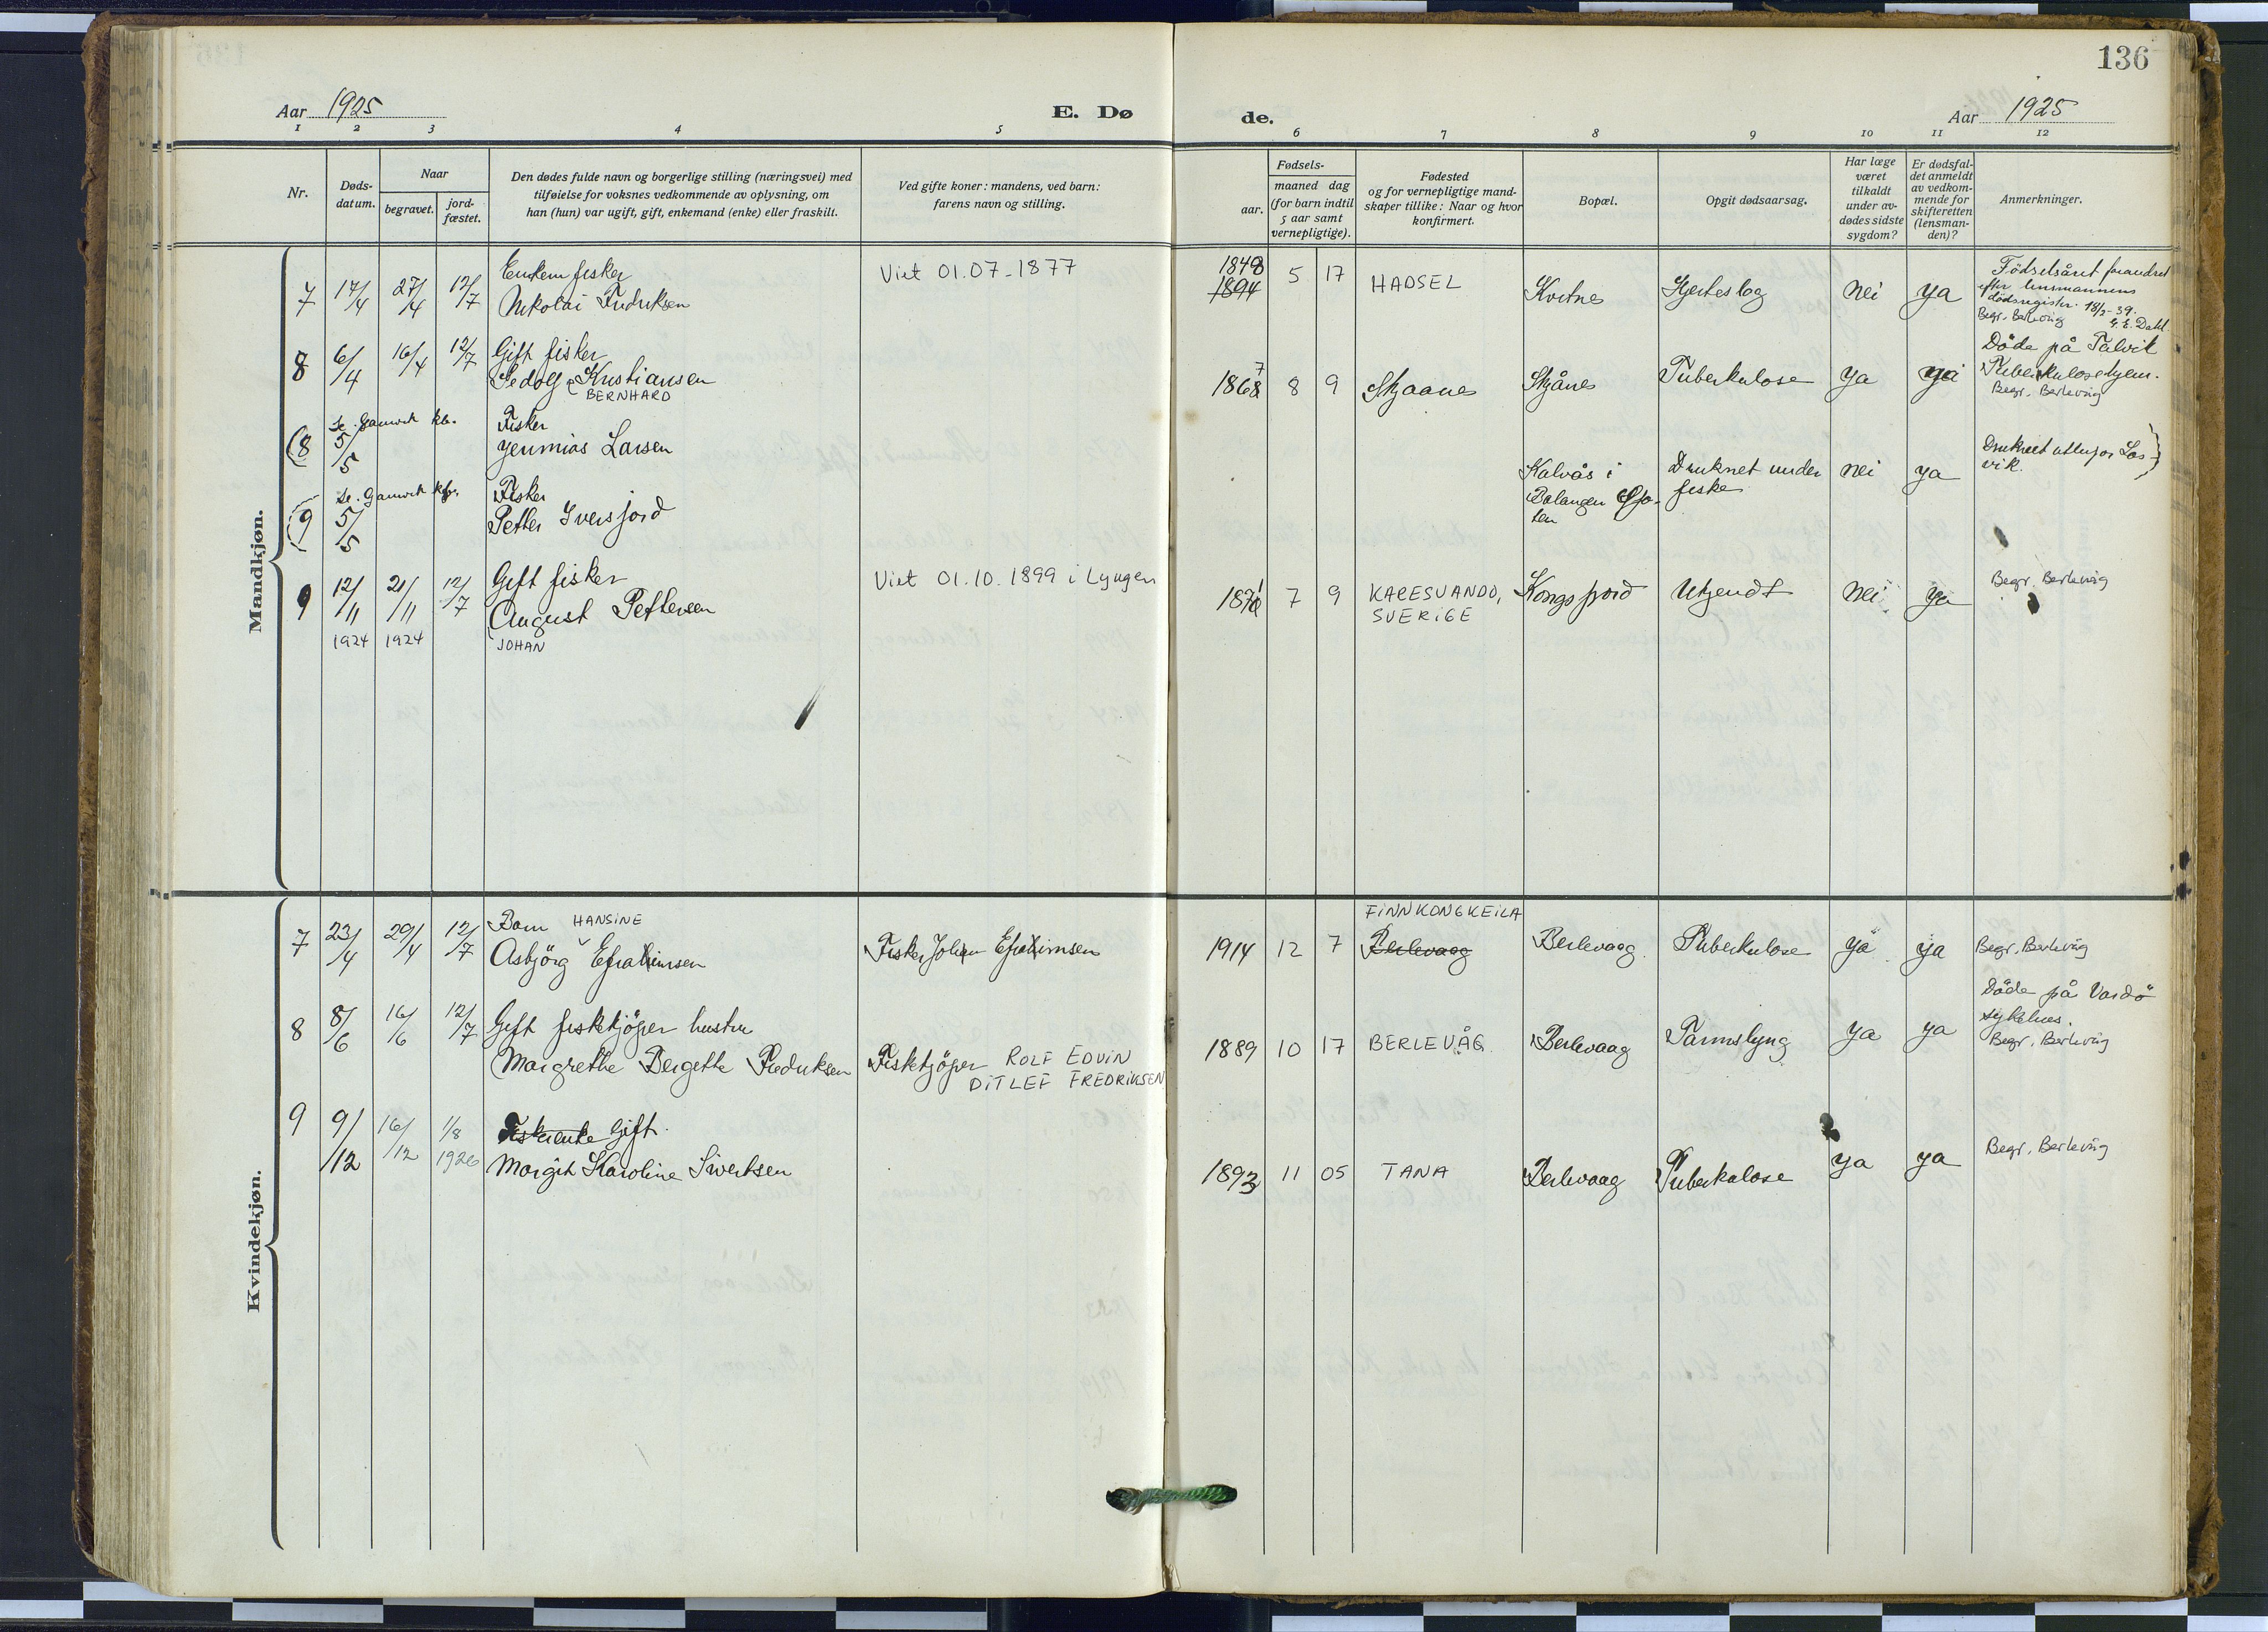 136
Aar 1925
E. Dø
de.
Aar 1925
1 2 3 4 5 6 7 8 9 10 11 12
Nr.
Døds-
datum.
Naar
begravet.
jord-
fæstet.
Den dødes fulde navn og borgerlige stilling (næringsvei) med
tilføielse for voksnes vedkommende av oplysning, om
han (hun) var ugift, gift, enkemand (enke) eller fraskilt.
Ved gifte koner: mandens, ved barn:
farens navn og stilling.
Fødsels-
aar.
maaned dag
(for barn indtil
5 aar samt
vernepligtige).
Fødested
og for vernepligtige mand-
skaper tillike: Naar og hvor
konfirmert.
Bopæl.
Opgit dødsaarsag.
Har læge
været
tilkaldt
under av-
dødes sidste
sygdom?
Er dødsfal-
det anmeldt
av vedkom-
mende for
skifteretten
(lensman-
den)?
Anmerkninger.
Mandkjøn.
7 17/4 27/4 12/7 Enkem fisker
Nikolai Fredriksen
Viet 01.07-1877
1848
1894 5 17 HADSEL Kvitnes Hjerteslag Nei ya
Födselsåret forandret
efter lensmannens
dödsregister. 18/2-39.
Begr. Berlevåg G. E. Dahl.
8 6/4 16/4 12/7 Gift fisker
Sedolf Kristiansen
BERNHARD
7
1868 8 9 Skjaanes Skjånes Tuberkulose ya ya
Döde på Talvik
Tuberkulosehjem.
Begr. Berlevåg
Se. Gamvik kb.
(8 5/5 Fisker
Jenmias Larsen
Kalvås i
Balangen
Druknet under
fiske
nei ya
Druknet utenfor Los-
vik.
Se. Gamvik kb.
(9 5/5 Fisker
Petter Iversfjord
9 12/11 21/11 12/7 Gift fisker
August Pettersen
1924 1924 JOHAN
Viet 01.10.1899 i Lyngen
1871 7 9 KARESUANDO,
SVERIGE
Kongsfjord Ukjendt Nei ya Begr. Berlevåg
Kvindekjøn.
7 23/4 29/4 12/7 Barn HANSINE
Asbjörg Efraimsen
Fisker Johan Efraimsen
1914 12 7 FINNKONGKEILA
Berlevaag
Berlevaag Tuberkulose ya ya Begr. Berlevåg
8 8/6 16/6 12/7 Gift fiskekjöper hustru
Margrethe Bergette Fredriksen
Fiskekjöper ROLF EDVIN
DITLEF FREDRIKSEN
1889 10 17 BERLEVÅG Berlevaag Tarmslyng ya ya
Döde på Vardö
sykehus.
Begr. Berlevåg
9 9/12 16/12 1/8
1926
Fiskerenke Gift.
Margit Karoline Sivertsen
1893 11 05 TANA Berlevaag Tuberkulose ya ya Begr. Berlevåg